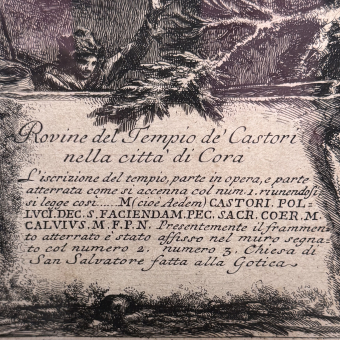 Rovine del Tempio de' Castori
nella città di Cora
L'iscrizione del tempio, parte in opera, e parte
atterrata come si accenna col num 1. riunendosi
si legge così.....M(cioè Aedem) CASTORI. POL=
LVCI. DEC. S. FACIENDAM. PEC. SACR. COER. M.
CALVIVS. M. F. P. N. Presentemente il frammen=
to atterrato è stato affisso nel muro segna=
to col numero 2. numero 3. Chiesa di
San Salvatore fatta alla Gotica